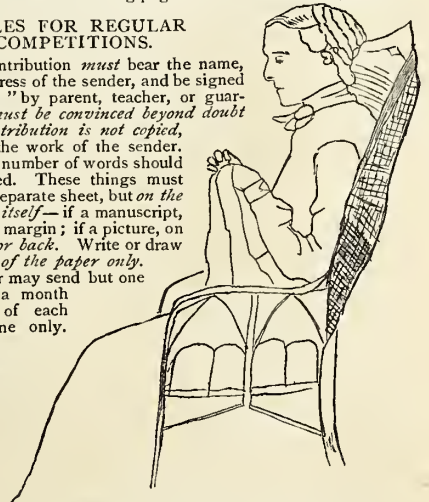 LES FOR REGULAR
COMPETITIONS.
ntribution must bear the name,
ress of the sender, and be signed
" by parent, teacher, or guar-
ust be convinced beyond doubt
tribution is not copied,
he work of the sender.
number of words should
ed. These things must
eparate sheet, but on the
itself—if a manuscript,
margin; if a picture, on
or back. Write or draw
of the paper only.
r may send but one
a month
of each
ne only.